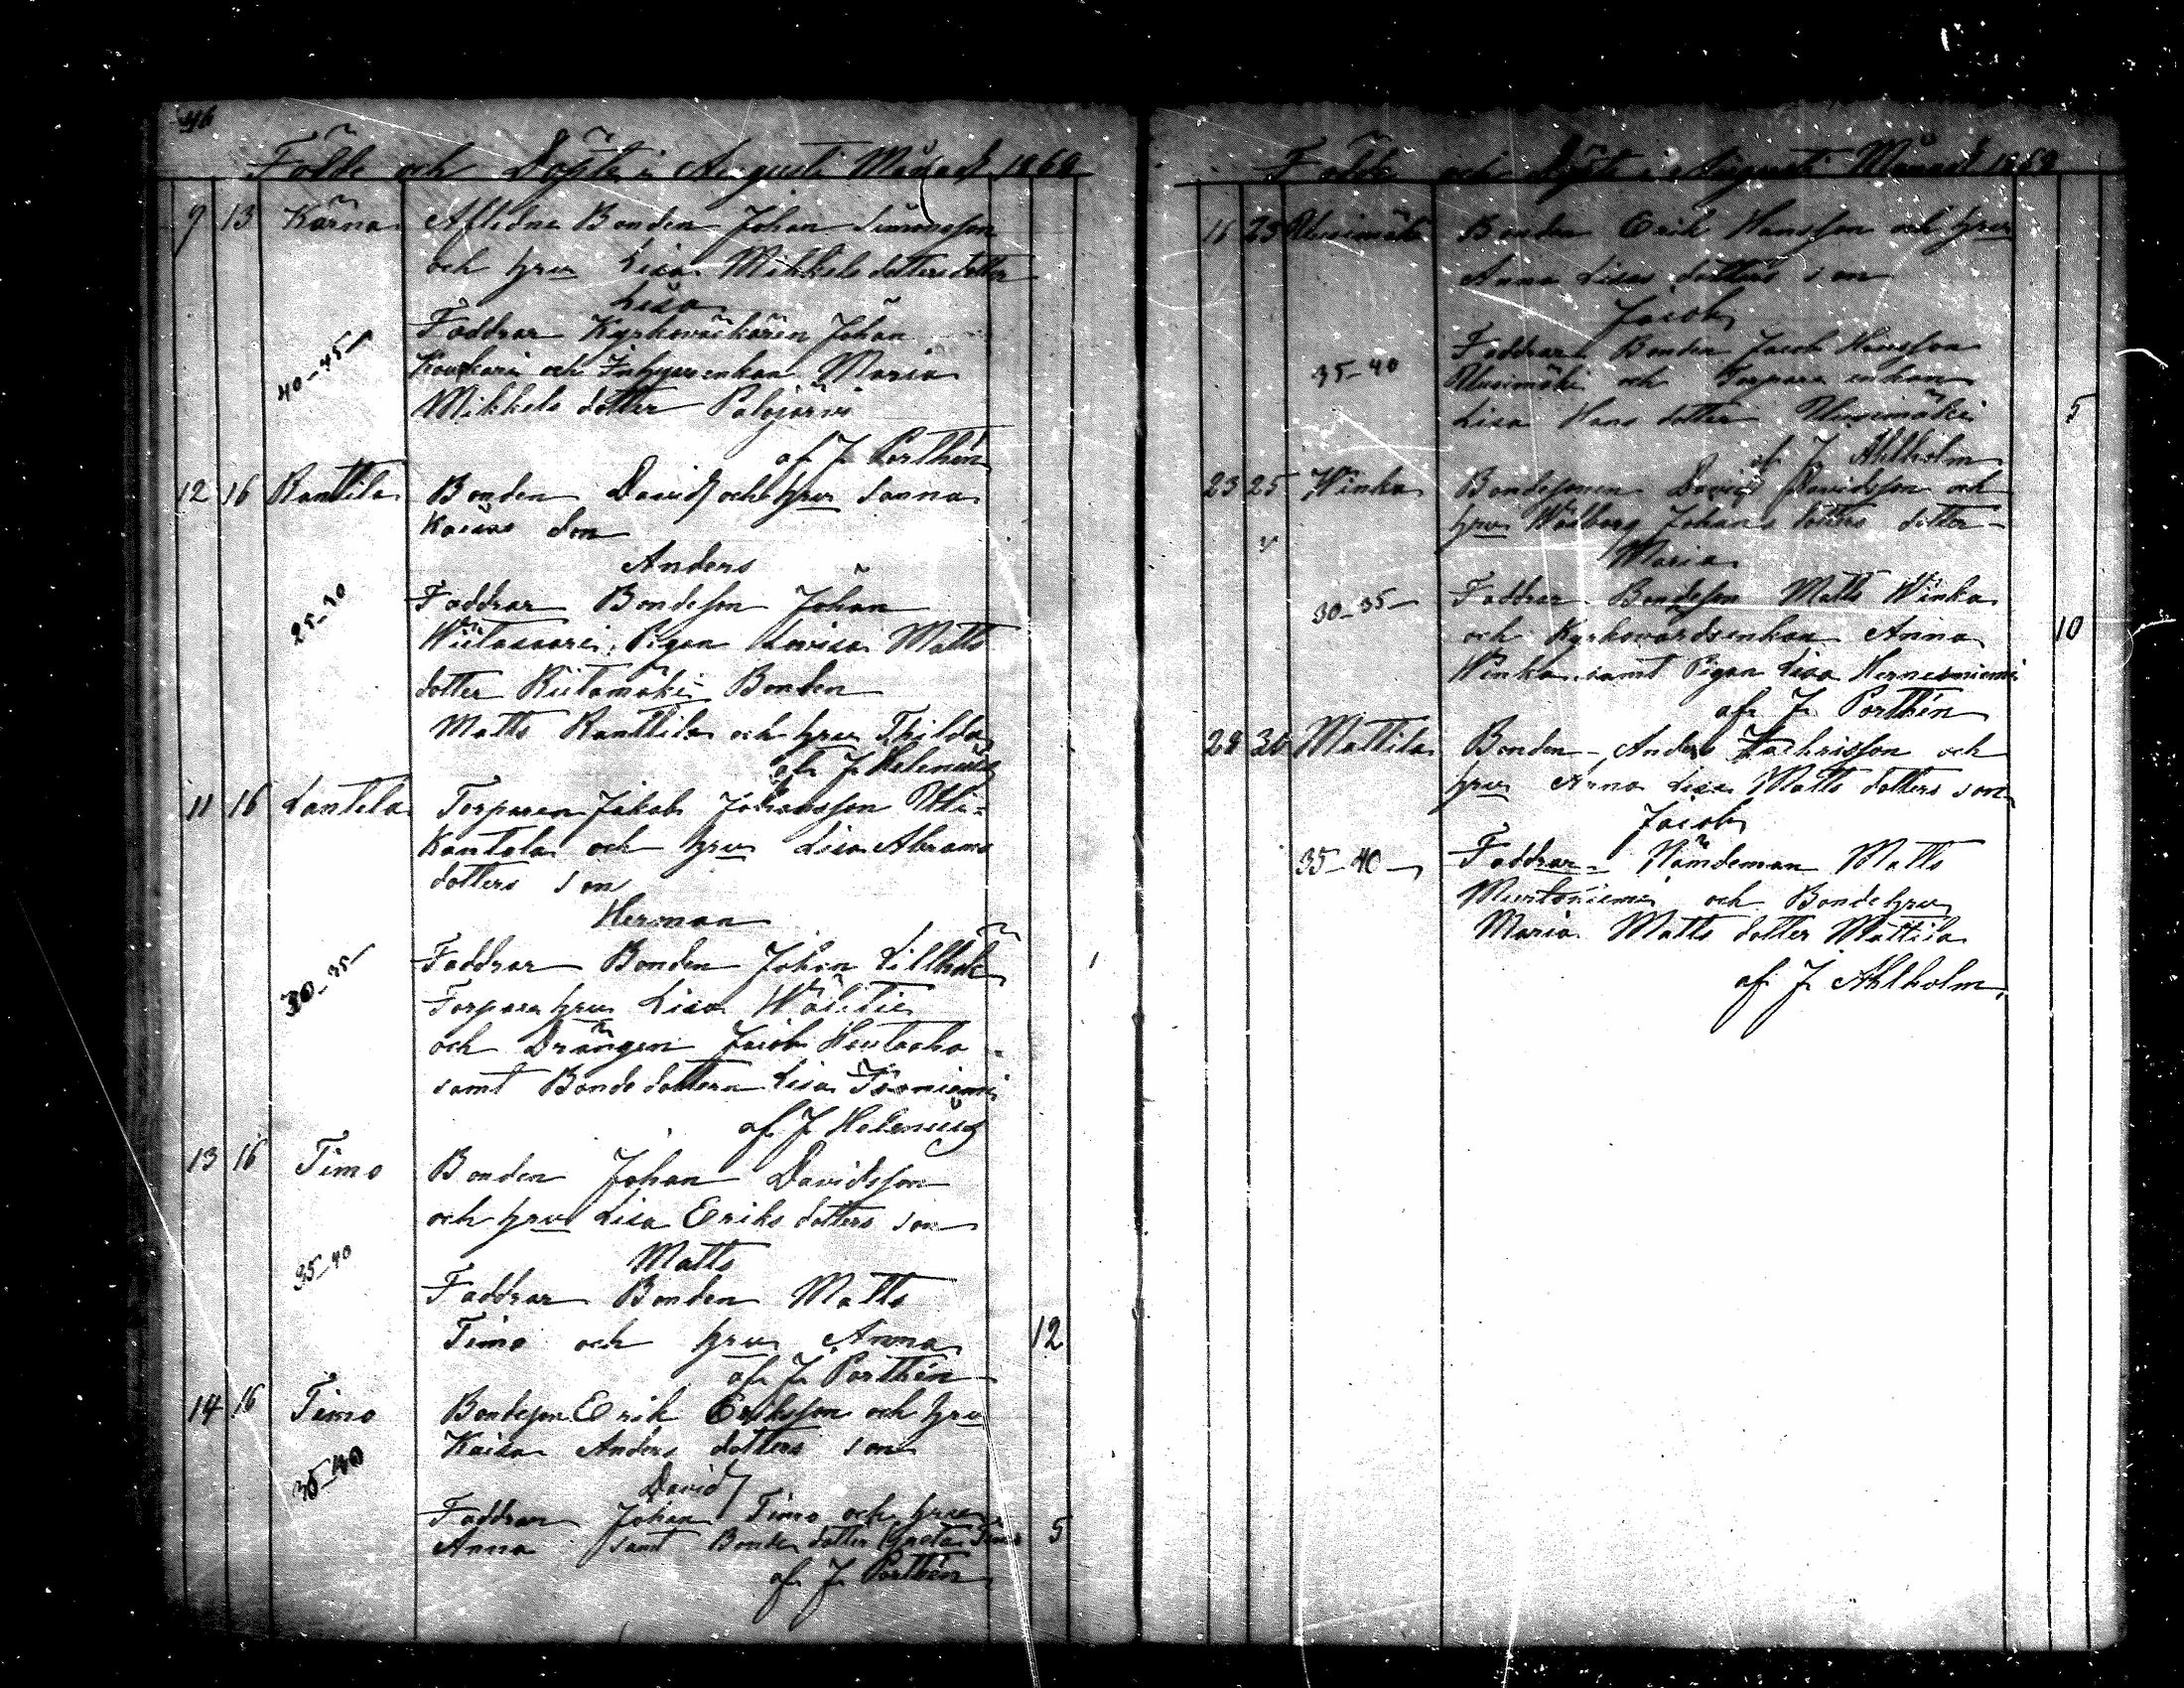 46
Födde och Döpte i Augusti Månad 1868
9 13 Kärna Aflidne Bonden Johan Simonsson
och hru Lisa Mikkels dotters dotter
Lisa
Faddrar Kyrkoväktaren Johan
40-45 Kouhari och Inhysenkan Maria
Mikkels dotter Palojärvi
af J. Porthén
12 16 Ranttila Bonden David och hru Sanna
Kaisas son
Anders
25-30 Faddrar Bondeson Johan
Wiitasaari, Pigan Lovisa Matts
dotter Riitamäki Bonden
Matts Ranttila och hru Thilda
af J. Helenius
11 16 Lantela Torparen Jakob Johansson
Kantola och hru Lisa Abrams
dotters son
Herman
30-35 Faddrar Bonden Johan Lillbäk
Torpare hru Lisa
och Drängen Jacob Hautaaho
samt Bonde dottern Lisa Isoniemi
af J. Helenius
13 16 Timo Bonden Johan Davidsson
och hru Lisa Eriks dotters son
35-40 Matts
Faddrar Bonden Matts
Timo och hru Anna 12
af J. Porthén
14 16 Timo Bondeson Erik Eriksson och hru
Kaisa Anders dotters son
35-40 David
Faddrar Johan Timo och hru
Anna samt Bonde dotter Greta Timo 5
af J. Porthén
Födde och Döpte i Augusti Månad 1868
16 23 Uusimäki Bonden Erik Hansson och hru
Anna Lisas dotters son
Jacob
35-40 Faddrar Bonden Jacob Hansson
Uusimäki och Torpare enkan
Lisa Hans dotter Uusimäki 5
af J. Ahlholm
23 25 Winka Bondesonen David Davidsson och
hru Walborg Johans dotters dotter
Maria
30-35 Faddrar Bondeson Matts Winka
och Kyrkovärdsenkan Anna 10
Winka samt Pigan Lisa Hernesniemi
af J. Porthén
28 30 Mattila Bonden Anders Zachrisson och
hru Anna Lisa Matts dotters son
Jacob
35-40 Faddrar Nämdeman Matts
Murtoniemi och Bonde hru
Maria Matts dotter Mattila
af J. Ahlholm